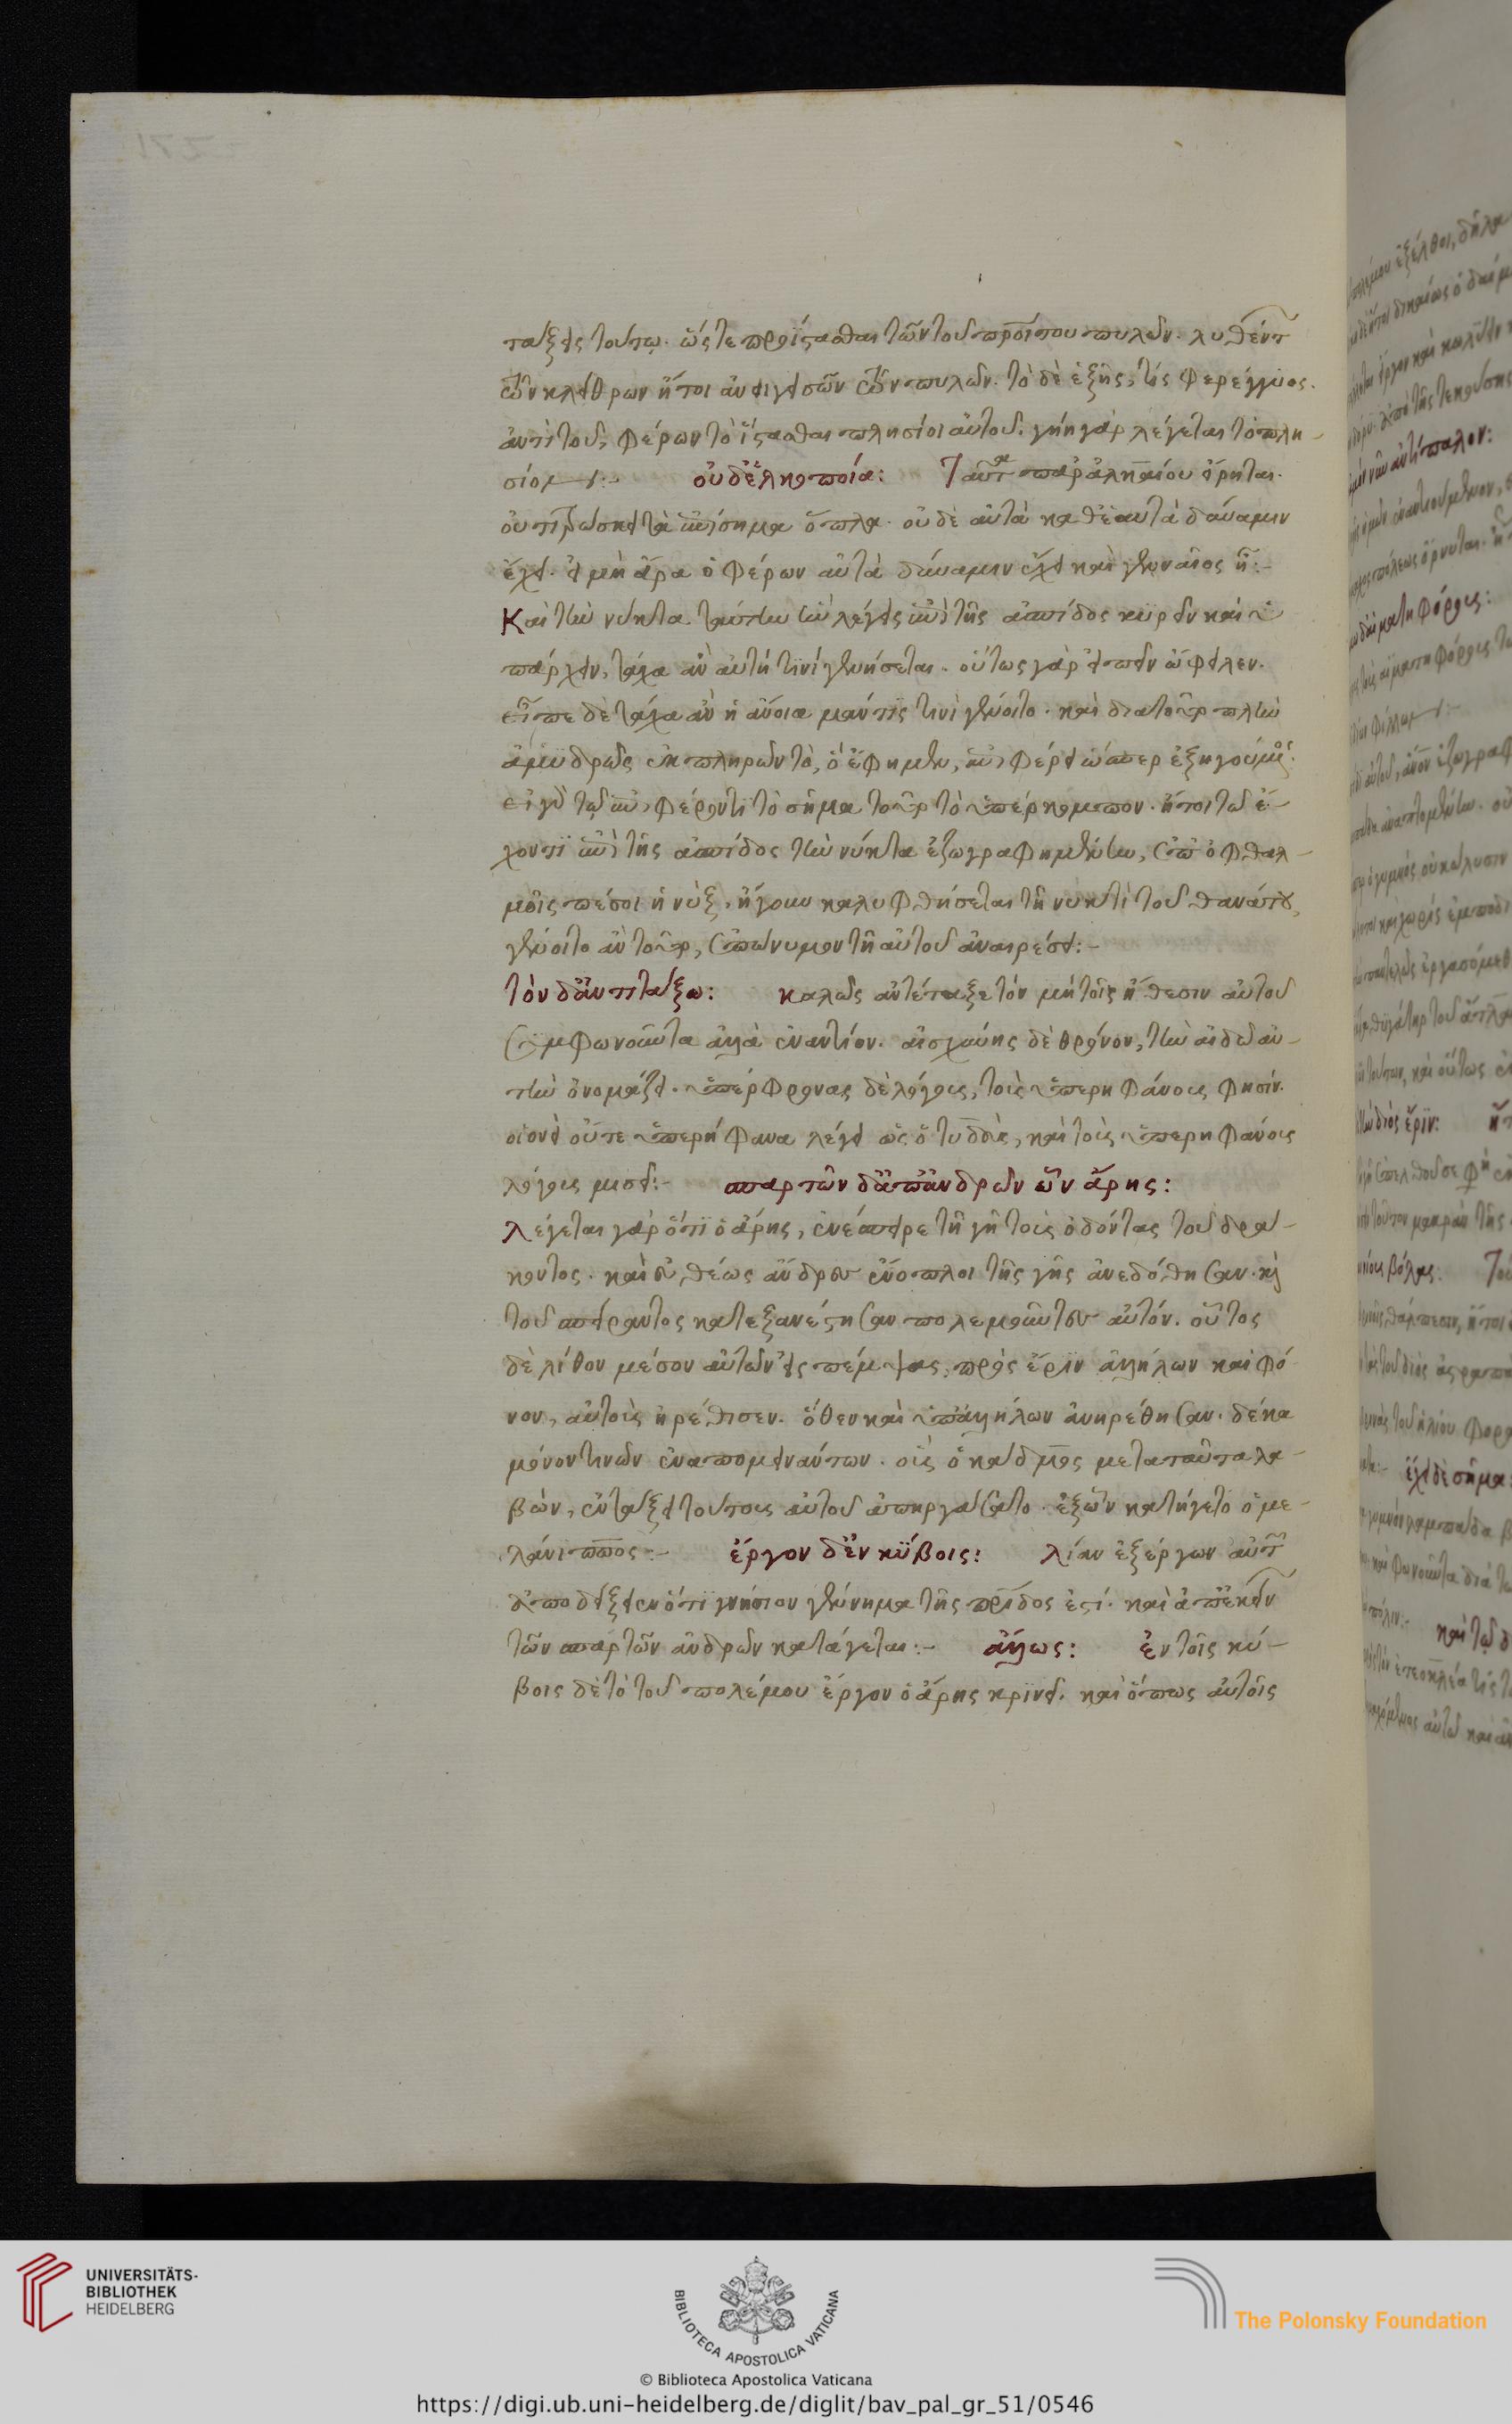 τάξεις τούτῳ. ὥστε προΐστασθαι τῶν τοῦ προίτου πυλῶν. λυθέντ
τῶν κλείθρων ἤτοι ἀνοιγεισῶν τῶν πυλῶν. τὸ δὲ ἑξῆς, τίς φερέγγυος.
ἀντὶ τοῦ, φέρων τὸ ἵστασθαι πλησίον αὐτοῦ. γύη γὰρ λέγεται τὸ πλη-
σίον:- οὐδ' ἑλκοποιά: Ταῦτα παρ' ἀλκαίου εἴρηται.
οὐ τιτρώσκει τὰ ἐπίσημα ὅπλα. οὐδὲ αὐτὰ καθ' ἑαυτὰ δύναμιν
ἔχει. εἰ μὴ ἄρα ὁ φέρων αὐτὰ δύναμιν ἔχει καὶ γενναῖος ᾖ:-
Καὶ τὴν νύκτα ταύτην ἣν λέγεις ἐπὶ τῆς ἀσπίδος κυρεῖν καὶ ὑ
πάρχειν, τάχα ἂν αὐτή τινι γενήσεται. οὕτως γὰρ εἰπεῖν ὤφειλεν.
εἶπε δὲ τάχα ἂν ἡ ἄνοια μάντις τινὶ γένοιτο. καὶ διὰ τοῦτο πλὴν
ἀμυδρῶς ἐκπληρῶν τὸ, ὃ ἔφημεν, ἐπιφέρει ὥσπερ ἐξηγούμενος.
εἰ γὰρ τῷ ἐπιφέροντι τὸ σῆμα τοῦτο τὸ ὑπέρκομπον. ἤτοι τῷ ἔ-
χοντι ἐπὶ τῆς ἀσπίδος τὴν νύκτα ἐζωγραφημένην, ἐπ' ὀφθαλ-
μοῖς πέσοι ἡ νὺξ, ἤγουν καλυφθήσεται τῇ νυκτὶ τοῦ θανάτου,
γένοιτο ἂν τοῦτο, ἐπώνυμον τῇ αὐτοῦ ἀναιρέσει:-
τὸν δ' ἀντιτάξω: καλῶς ἀντέταξε τὸν μὴ τοῖς ἤθεσιν αὐτοῦ
συμφωνοῦντα ἀλλὰ ἐναντίον. αἰσχύνης δὲ θρόνον, τὴν αἰδῶ αὐ-
τὴν ὀνομάζει. ὑπέρφρονας δὲ λόγους, τοὺς ὑπερηφάνους φησίν.
οἱονεὶ οὔτε ὑπερήφανα λέγει ὡς ὁ τυδεὺς, καὶ τοὺς ὑπερηφάνους
λόγους μισεῖ:- σπαρτῶν δ' ἀπ' ἀνδρῶν ὧν ἄρης:
Λέγεται γὰρ ὅτι ὁ ἄρης, ἐνέσπειρε τῇ γῇ τοὺς ὀδόντας τοῦ δρά-
κοντος. καὶ εὐθέως ἄνδρες ἔνοπλοι τῆς γῆς ἀνεδόθησαν. καὶ
τοῦ σπείραντος κατεξανέστησαν πολεμοῦντες αὐτόν. οὗτος
δὲ λίθον μέσον αὐτῶν εἰσπέμψας, πρὸς ἔριν ἀλλήλων καὶ φό
νον, αὐτοὺς ἠρέθισεν. ὅθεν καὶ ὑπ' ἀλλήλων ἀνῃρέθησαν. δέκα
μόνον τινῶν ἐναπομεινάντων. οὓς ὁ κάδμος μετὰ ταῦτα λα-
βὼν, ἐν τάξει τούτους αὐτοῦ ἀπηργάσατο. ἐξ ὧν κατήγετο ὁ με-
λάνιππος:- ἔργον δ' ἐν κύβοις: λίαν ἐξείργων αὐτ
ἀποδείξει ἐκ ὅτι γνήσιον γέννημα τῆς πατρίδος ἐστί. καὶ ἀπ' ἐκείν
τῶν σπαρτῶν ἀνδρῶν κατάγεται:- ἄλλως: ἐν τοῖς κύ-
βοις δὲ τὸ τοῦ πολέμου ἔργον ὁ ἄρης κρινεῖ. καὶ ὅπως αὐτοῖς
UNIVERSITÄTS-
BIBLIOTHEK
HEIDELBERG
BIBLIOTECA APOSTOLICA VATICANA
The Polonsky Foundation
© Biblioteca Apostolica Vaticana
https://digi.ub.uni-heidelberg.de/diglit/bav_pal_gr_51/0546